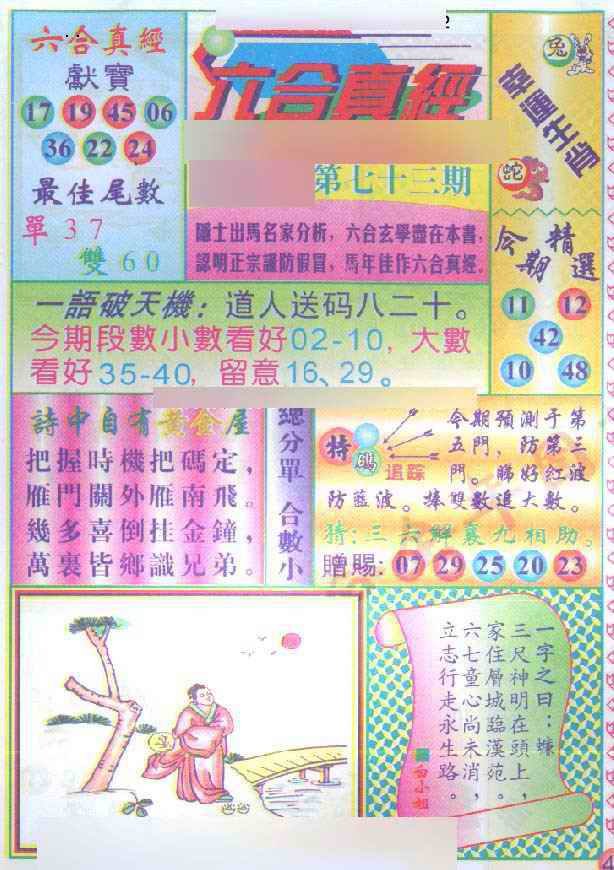 六合真經
獻寶
17 19 45 06
36 22 24
最佳尾數
單37
雙60
六合真經
第七十三期
隱士出馬名家分析，六合玄學盡在本書，
認明正宗謹防假冒，馬年佳作六合真經。
兔
蛇
今期精選
11 12
42
10 48
一語破天機：道人送码八二十。
今期段數小數看好02-10，大數
看好35-40，留意16、29。
詩中自有黃金屋
把握時機把碼定，
雁門關外雁南飛。
幾多喜倒挂金鐘，
萬裏皆鄉識兄弟。
總分單 合數小
特碼
追踪
今期預測于第
五門，防第三
門。睇好紅波
防藍波。捧雙數追大數。
猜：三六解裏九相助。
贈賜：07 29 25 20 23
一字之曰：
三尺神明在頭上，
家住層城臨漢苑。
六七童心尚未消，
立志行走永生路。
白小姐
4